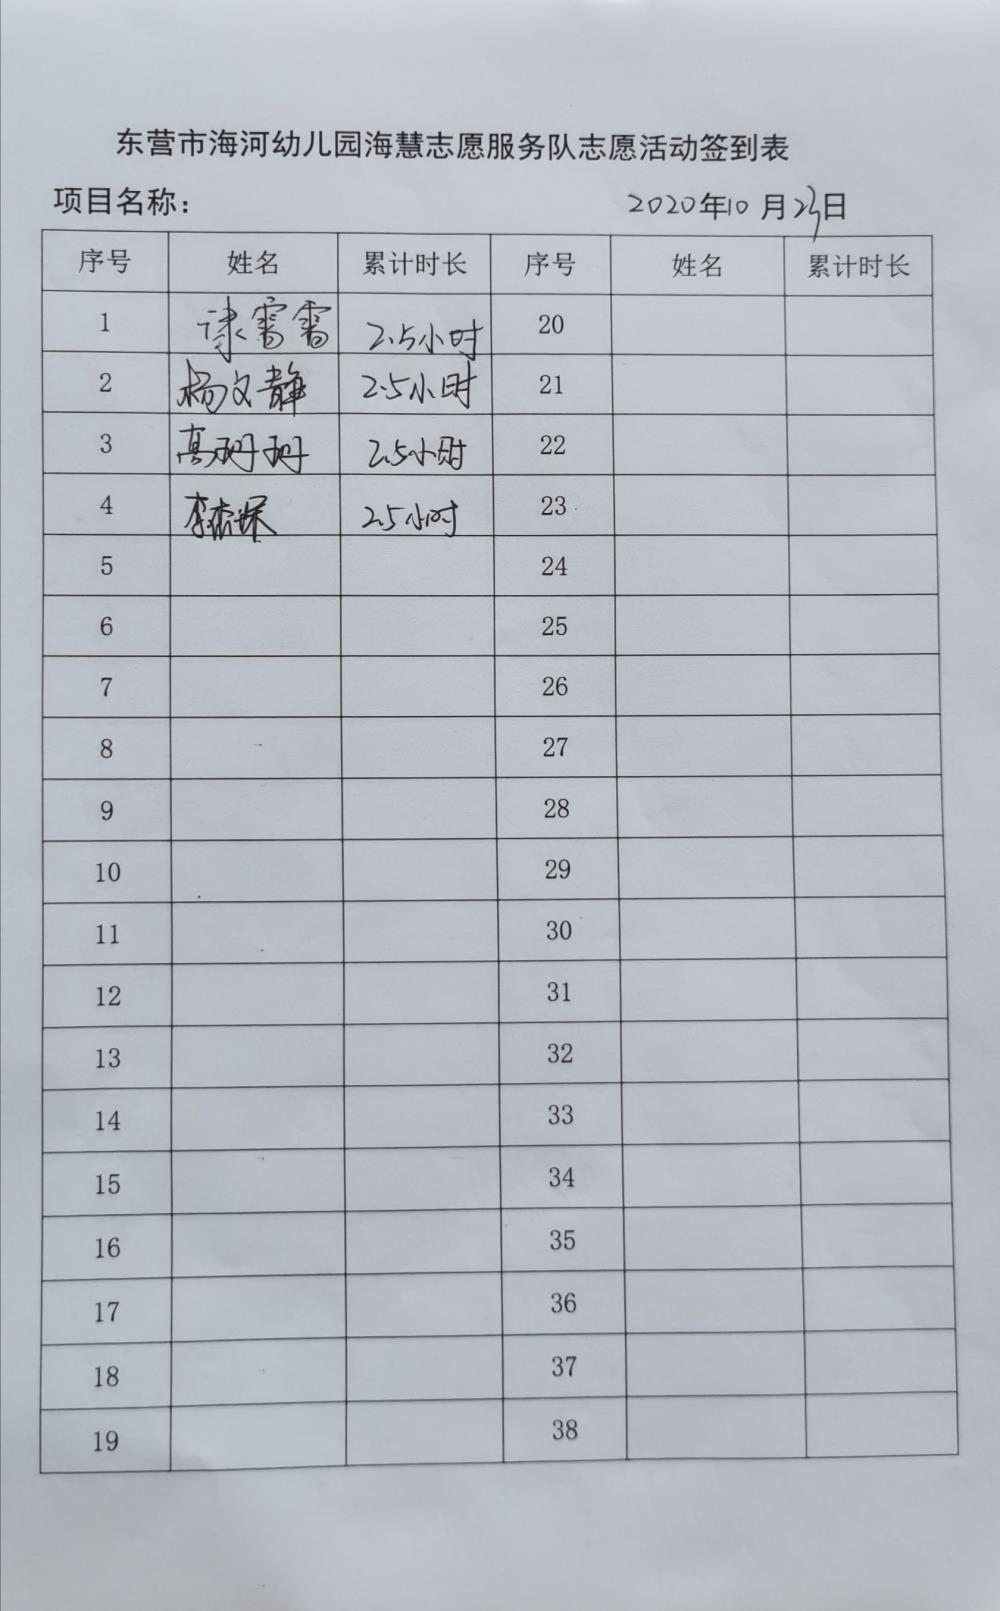 东营市海河幼儿园海慧志愿服务队志愿活动签到表
项目名称： 2020年10月23日
序号 姓名 累计时长 序号 姓名 累计时长
1 雪雪 2.5小时 20
2 杨文静 2.5小时 21
3 高珊珊 2.5小时 22
4 李 2.5小时 23
5 24
6 25
7 26
8 27
9 28
10 29
11 30
12 31
13 32
14 33
15 34
16 35
17 36
18 37
19 38